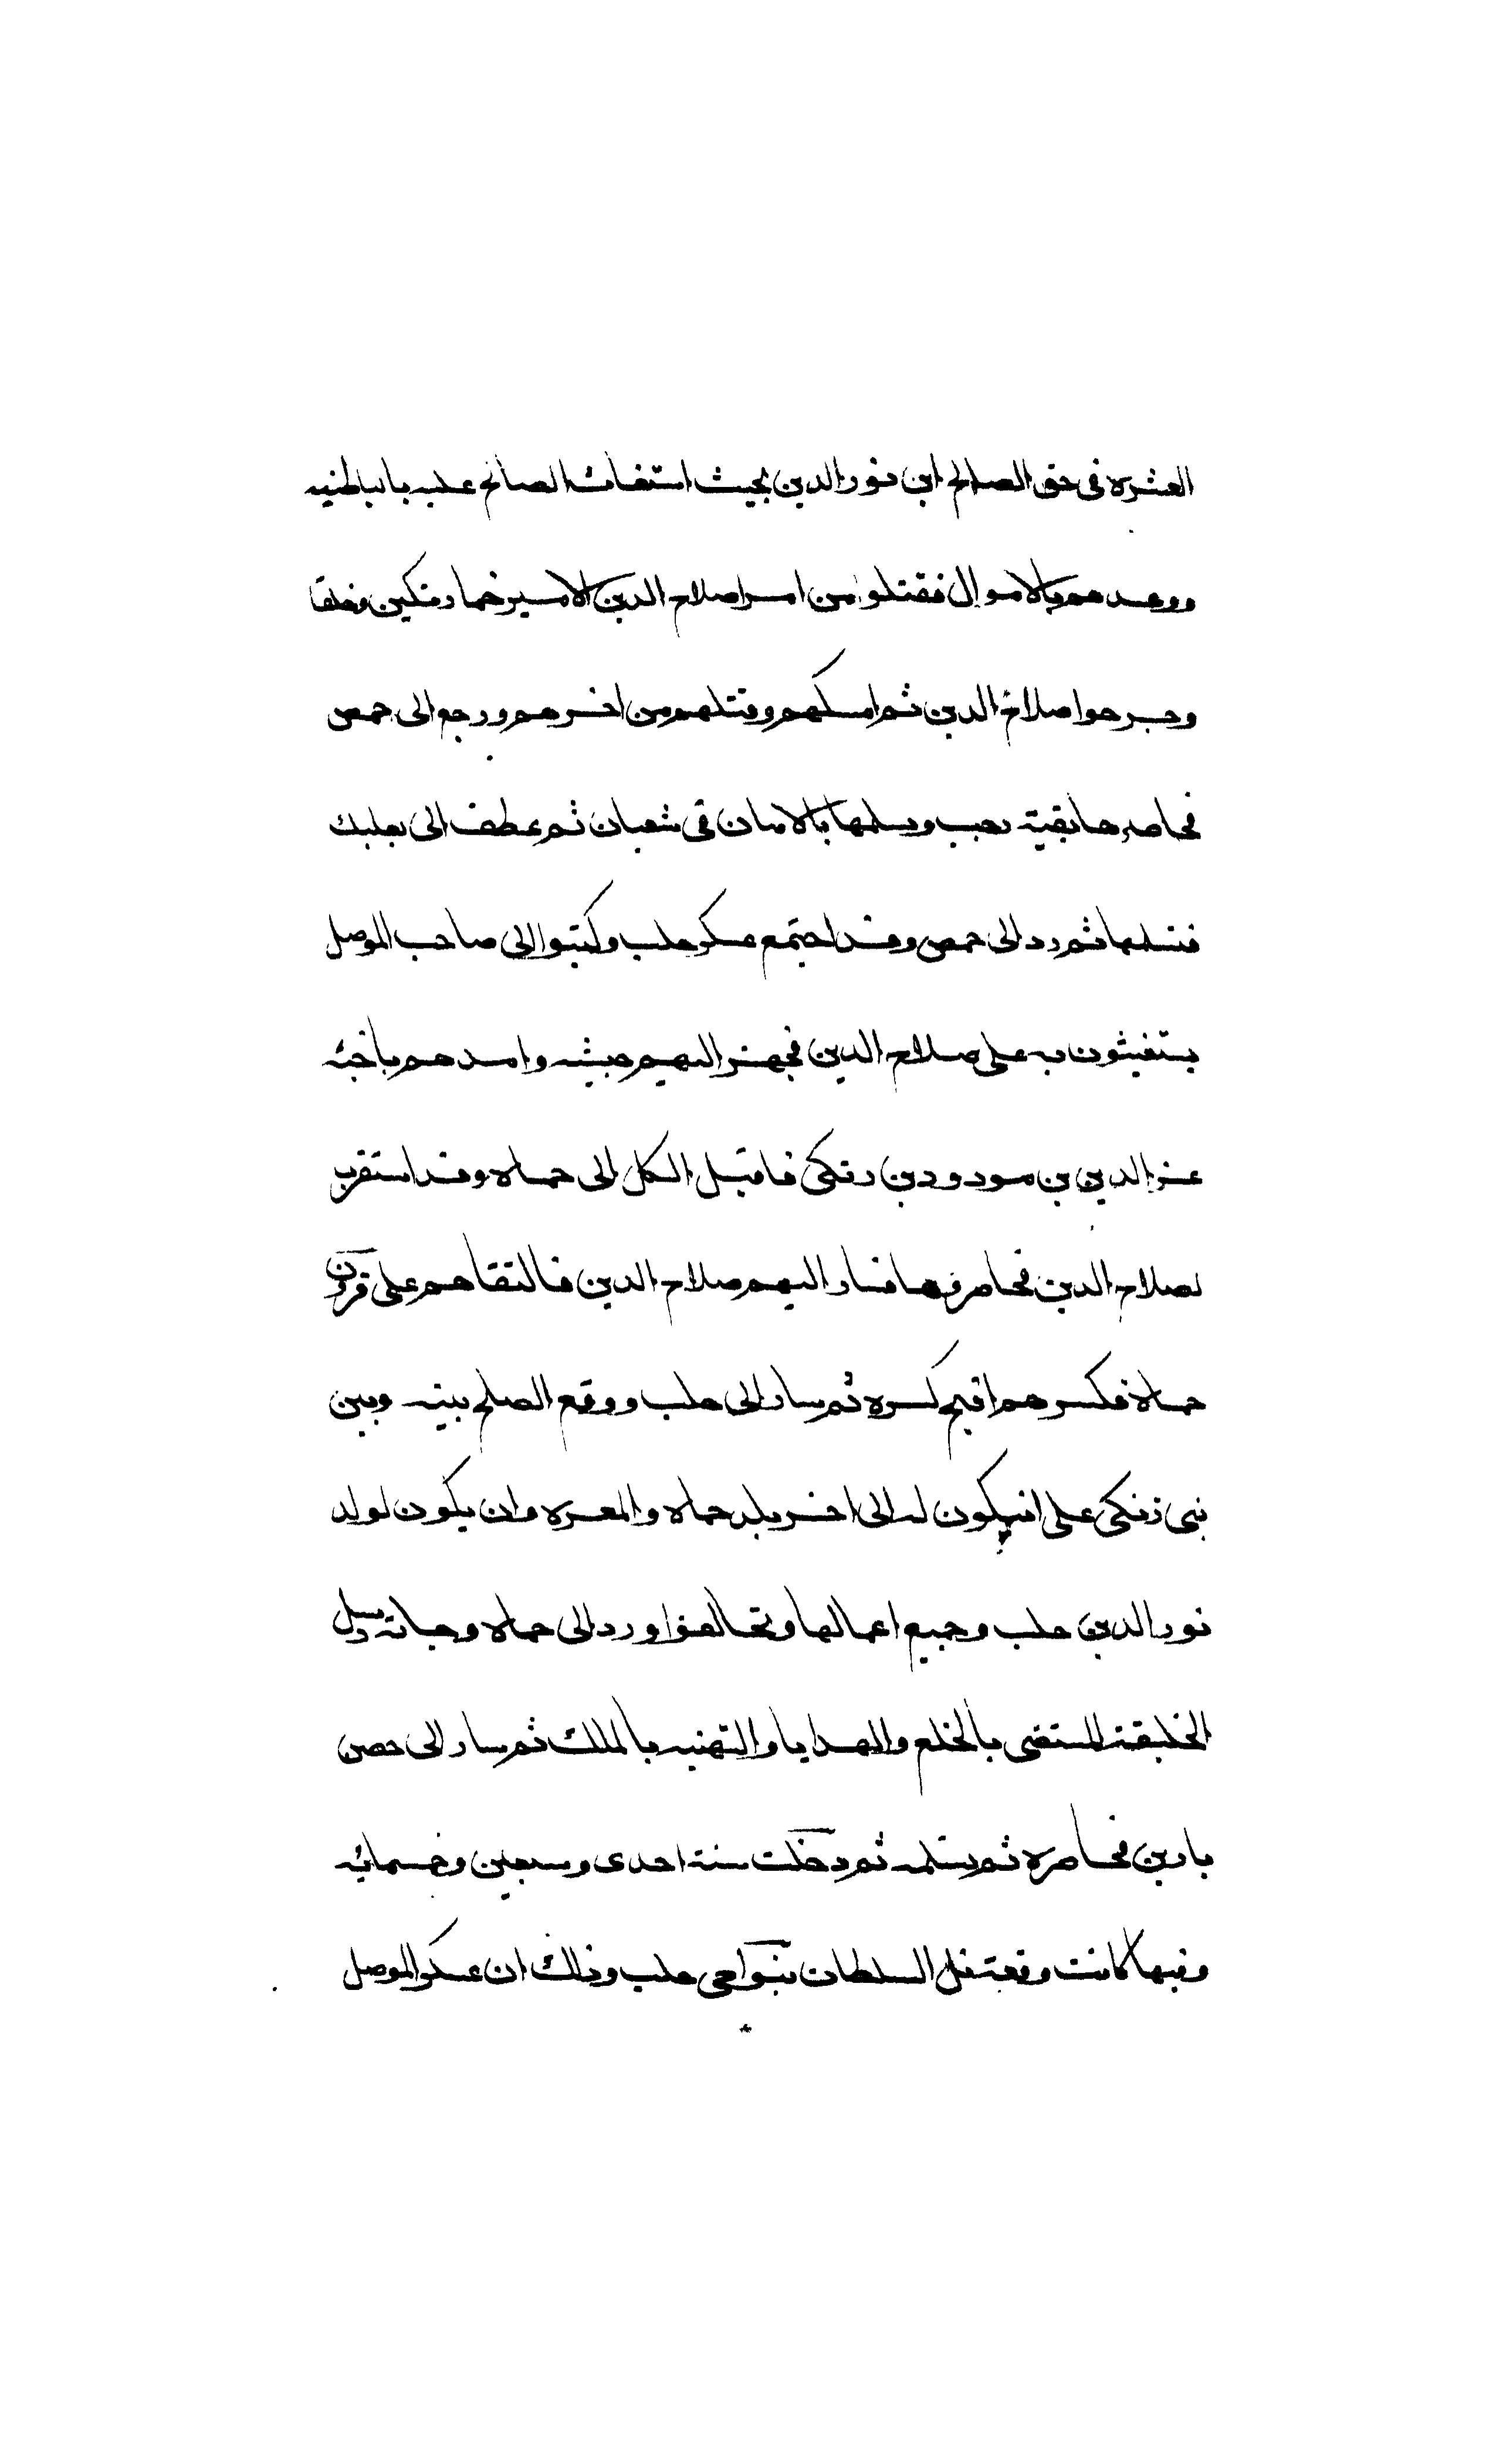 العشره فى حق الصالح ابن نور الدين بحيث استغاث الصالح عليه بالباطنيه
ووعدهم بالاموال فقتلوا من امرا صلاح الدين الامير خمارتكين وخلقا
وجرحوا صلاح الدين ثم امسكهم وقتلهم من اخرهم ورجع الى حمص
فحاصرها بقية رجب وسلمها بالامان فى شعبان ثم عطف الى بعلبك
فتسلمها ثم رد الى حمص وقد اجتمع عسكر حلب وكتبوا الى صاحب الموصل
يستغيثون به على صلاح الدين فجهز اليهم جيشه وامدهم باخيه
عز الدين بن مودود بن زنكى فاقبل الكل الى حماه وقد استقرب
لصلاح الدين فحاصروها فسار اليهم صلاح الدين فالتقاهم على قرون
حماة فكسرهم اقبح كسره ثم سار الى حلب ووقع الصلح بينه وبين
بنى زنكى على ان يكون له الى اخر بلد حماه والمعره وان يكون لولد
نور الدين حلب وجميع اعمالها وتحالفوا ورد الى حماه وجاته رسل
الخليفة المستضى بالخلع والهدايا والتهنيه بالملك ثم سار الى حصن
بارين فحاصره ثم تسلمه ثم دخلت سنة احدى وسبعين وخمسمائه
وفيها كانت وقعة تل السلطان بنواحى حلب وذلك ان عسكر الموصل